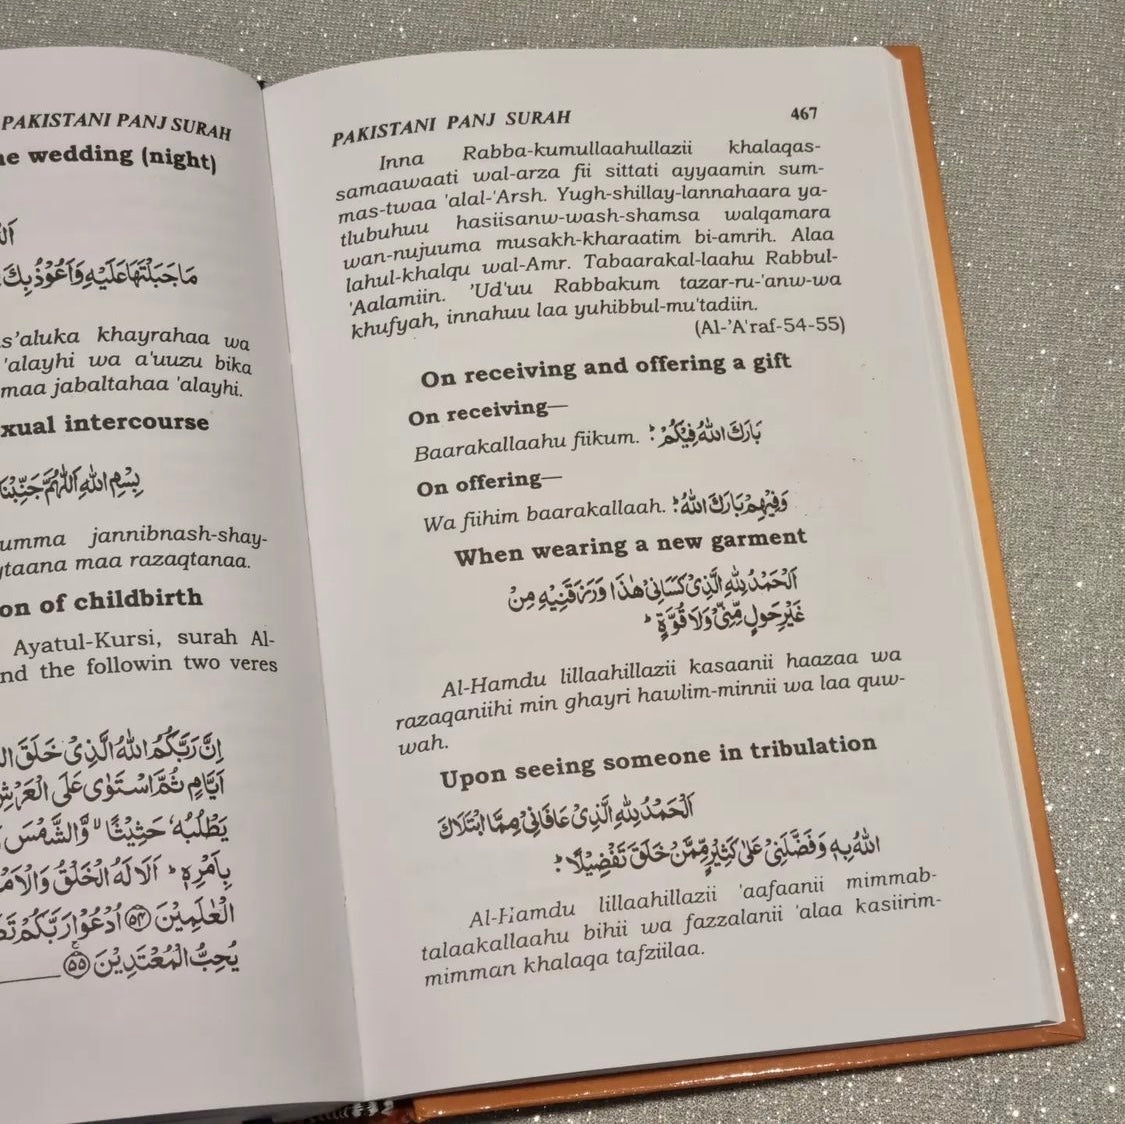 PAKISTANI PANJ SURAH
wedding (night)
مَا جَبَلْتَهَا عَلَيْهِ وَاَعُوْذُ بِكَ
khayrahaa wa
'alayhi wa a'uuzu bika
maa jabaltahaa 'alayhi.
intercourse
بِسْمِ اللهِ اَللّٰهُمَّ جَنِّبْنَا
jannibnash-shay-
maa razaqtanaa.
of childbirth
Ayatul-Kursi, surah Al-
the followin two veres
اِنَّ رَبَّكُمُ اللهُ الَّذِىْ خَلَقَ
اَيَّامٍ ثُمَّ اسْتَوٰى عَلَى الْعَرْشِ
يَطْلُبُهٗ حَثِيْثًا ۙ وَّالشَّمْسَ
بِاَمْرِهٖ ؕ اَلَا لَهُ الْخَلْقُ وَالْاَمْرُ
الْعٰلَمِيْنَ ﴿۵۴﴾ اُدْعُوْا رَبَّكُمْ
يُحِبُّ الْمُعْتَدِيْنَ ﴿۵۵﴾
PAKISTANI PANJ SURAH 467
Inna Rabba-kumullaahullazii khalaqas-
samaawaati wal-arza fii sittati ayyaamin sum-
mas-twaa 'alal-'Arsh. Yugh-shillay-lannahaara ya-
tlubuhuu hasiisanw-wash-shamsa walqamara
wan-nujuuma musakh-kharaatim bi-amrih. Alaa
lahul-khalqu wal-Amr. Tabaarakal-laahu Rabbul-
'Aalamiin. 'Ud'uu Rabbakum tazar-ru-'anw-wa
khufyah, innahuu laa yuhibbul-mu'tadiin.
(Al-'A'raf-54-55)
On receiving and offering a gift
On receiving—
Baarakallaahu fiikum. بَارَكَ اللهُ فِيْكُمْ ؛
On offering—
Wa fiihim baarakallaah. وَفِيْهِمْ بَارَكَ اللهُ ؛
When wearing a new garment
اَلْحَمْدُ لِلّٰهِ الَّذِىْ كَسَانِىْ هٰذَا وَرَزَقَنِيْهِ مِنْ
غَيْرِ حَوْلٍ مِّنِّىْ وَلَا قُوَّةٍ ؕ
Al-Hamdu lillaahillazii kasaanii haazaa wa
razaqaniihi min ghayri hawlim-minnii wa laa quw-
wah.
Upon seeing someone in tribulation
اَلْحَمْدُ لِلّٰهِ الَّذِىْ عَافَانِىْ مِمَّا ابْتَلَاكَ
اللهُ بِهٖ وَفَضَّلَنِىْ عَلٰى كَثِيْرٍ مِّمَّنْ خَلَقَ تَفْضِيْلًا ؛
Al-Hamdu lillaahillazii 'aafaanii mimmab-
talaakallaahu bihii wa fazzalanii 'alaa kasiirim-
mimman khalaqa tafziilaa.